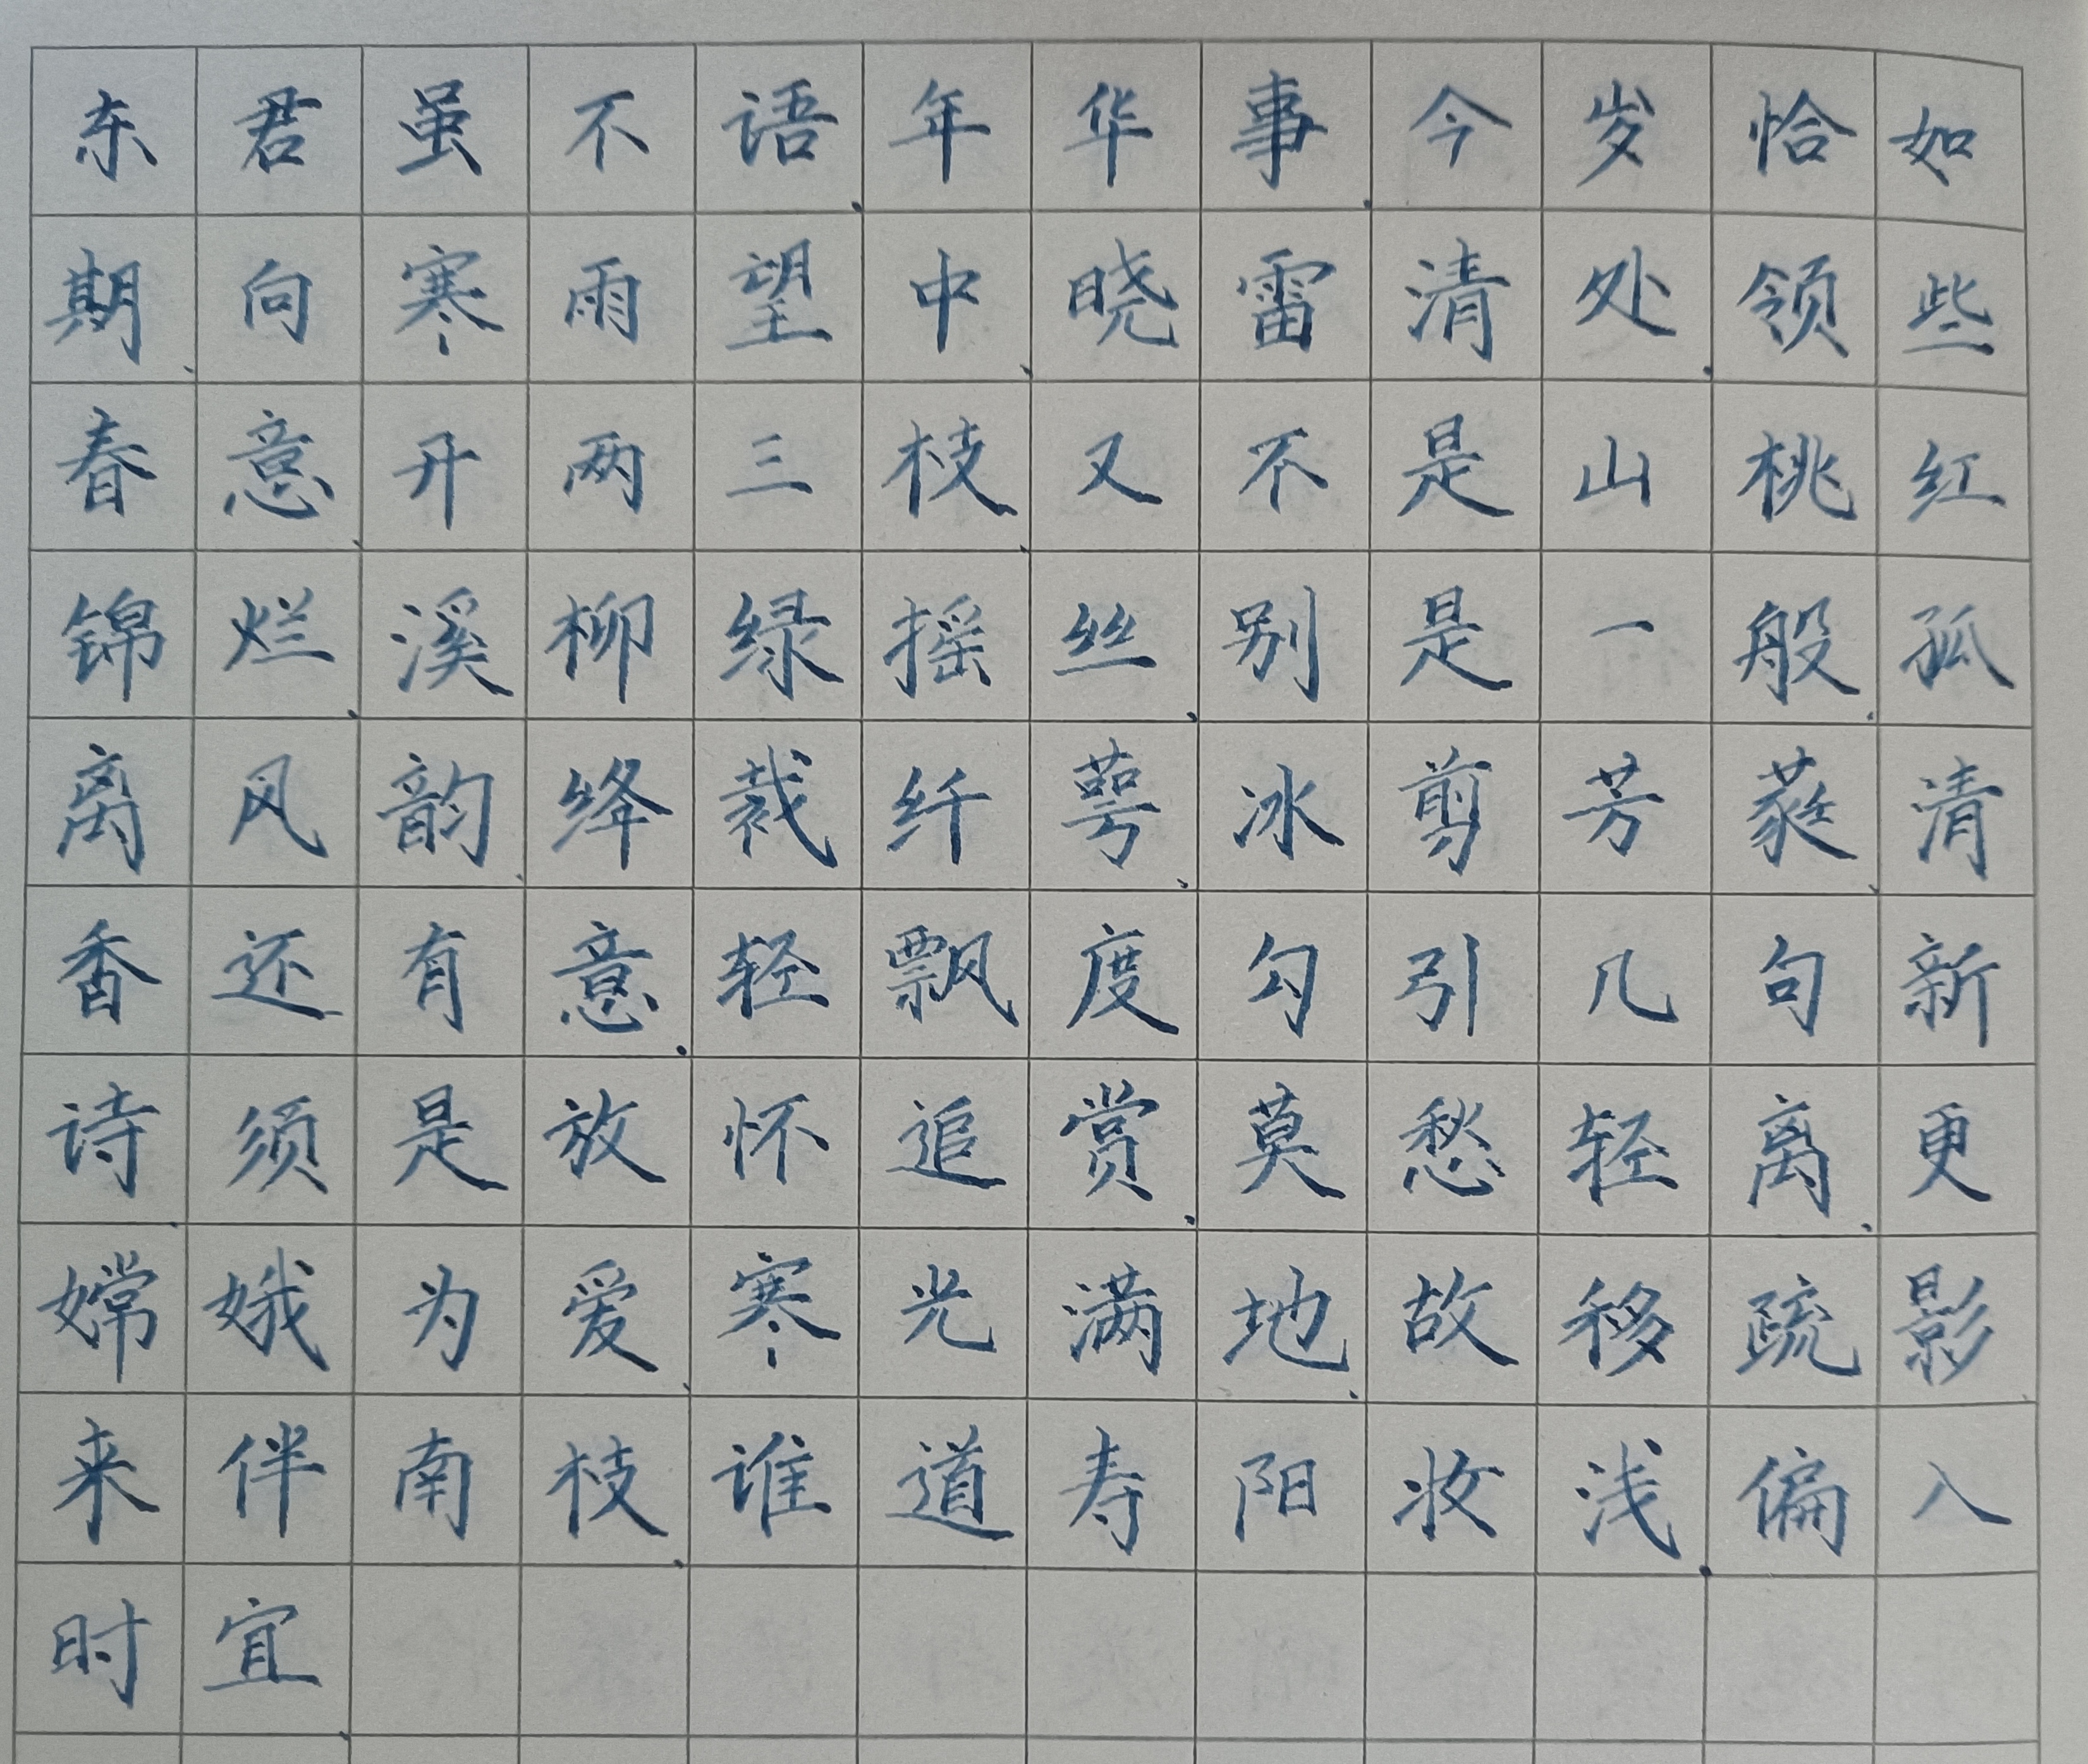 东君虽不语.年华事.今岁恰如
期、向寒雨望中、晓雷清处.领些
春意、开两三枝、又不是山桃红
锦烂、溪柳绿摇丝、别是一般、孤
离风韵、绛裁纤萼、冰剪芳蕤、清
香还有意.轻飘度勾引几句新
诗、须是放怀追赏、莫愁轻离、更
嫦娥为爱、寒光满地、故移疏影、
来伴南枝、谁道寿阳妆浅.偏入
时宜、